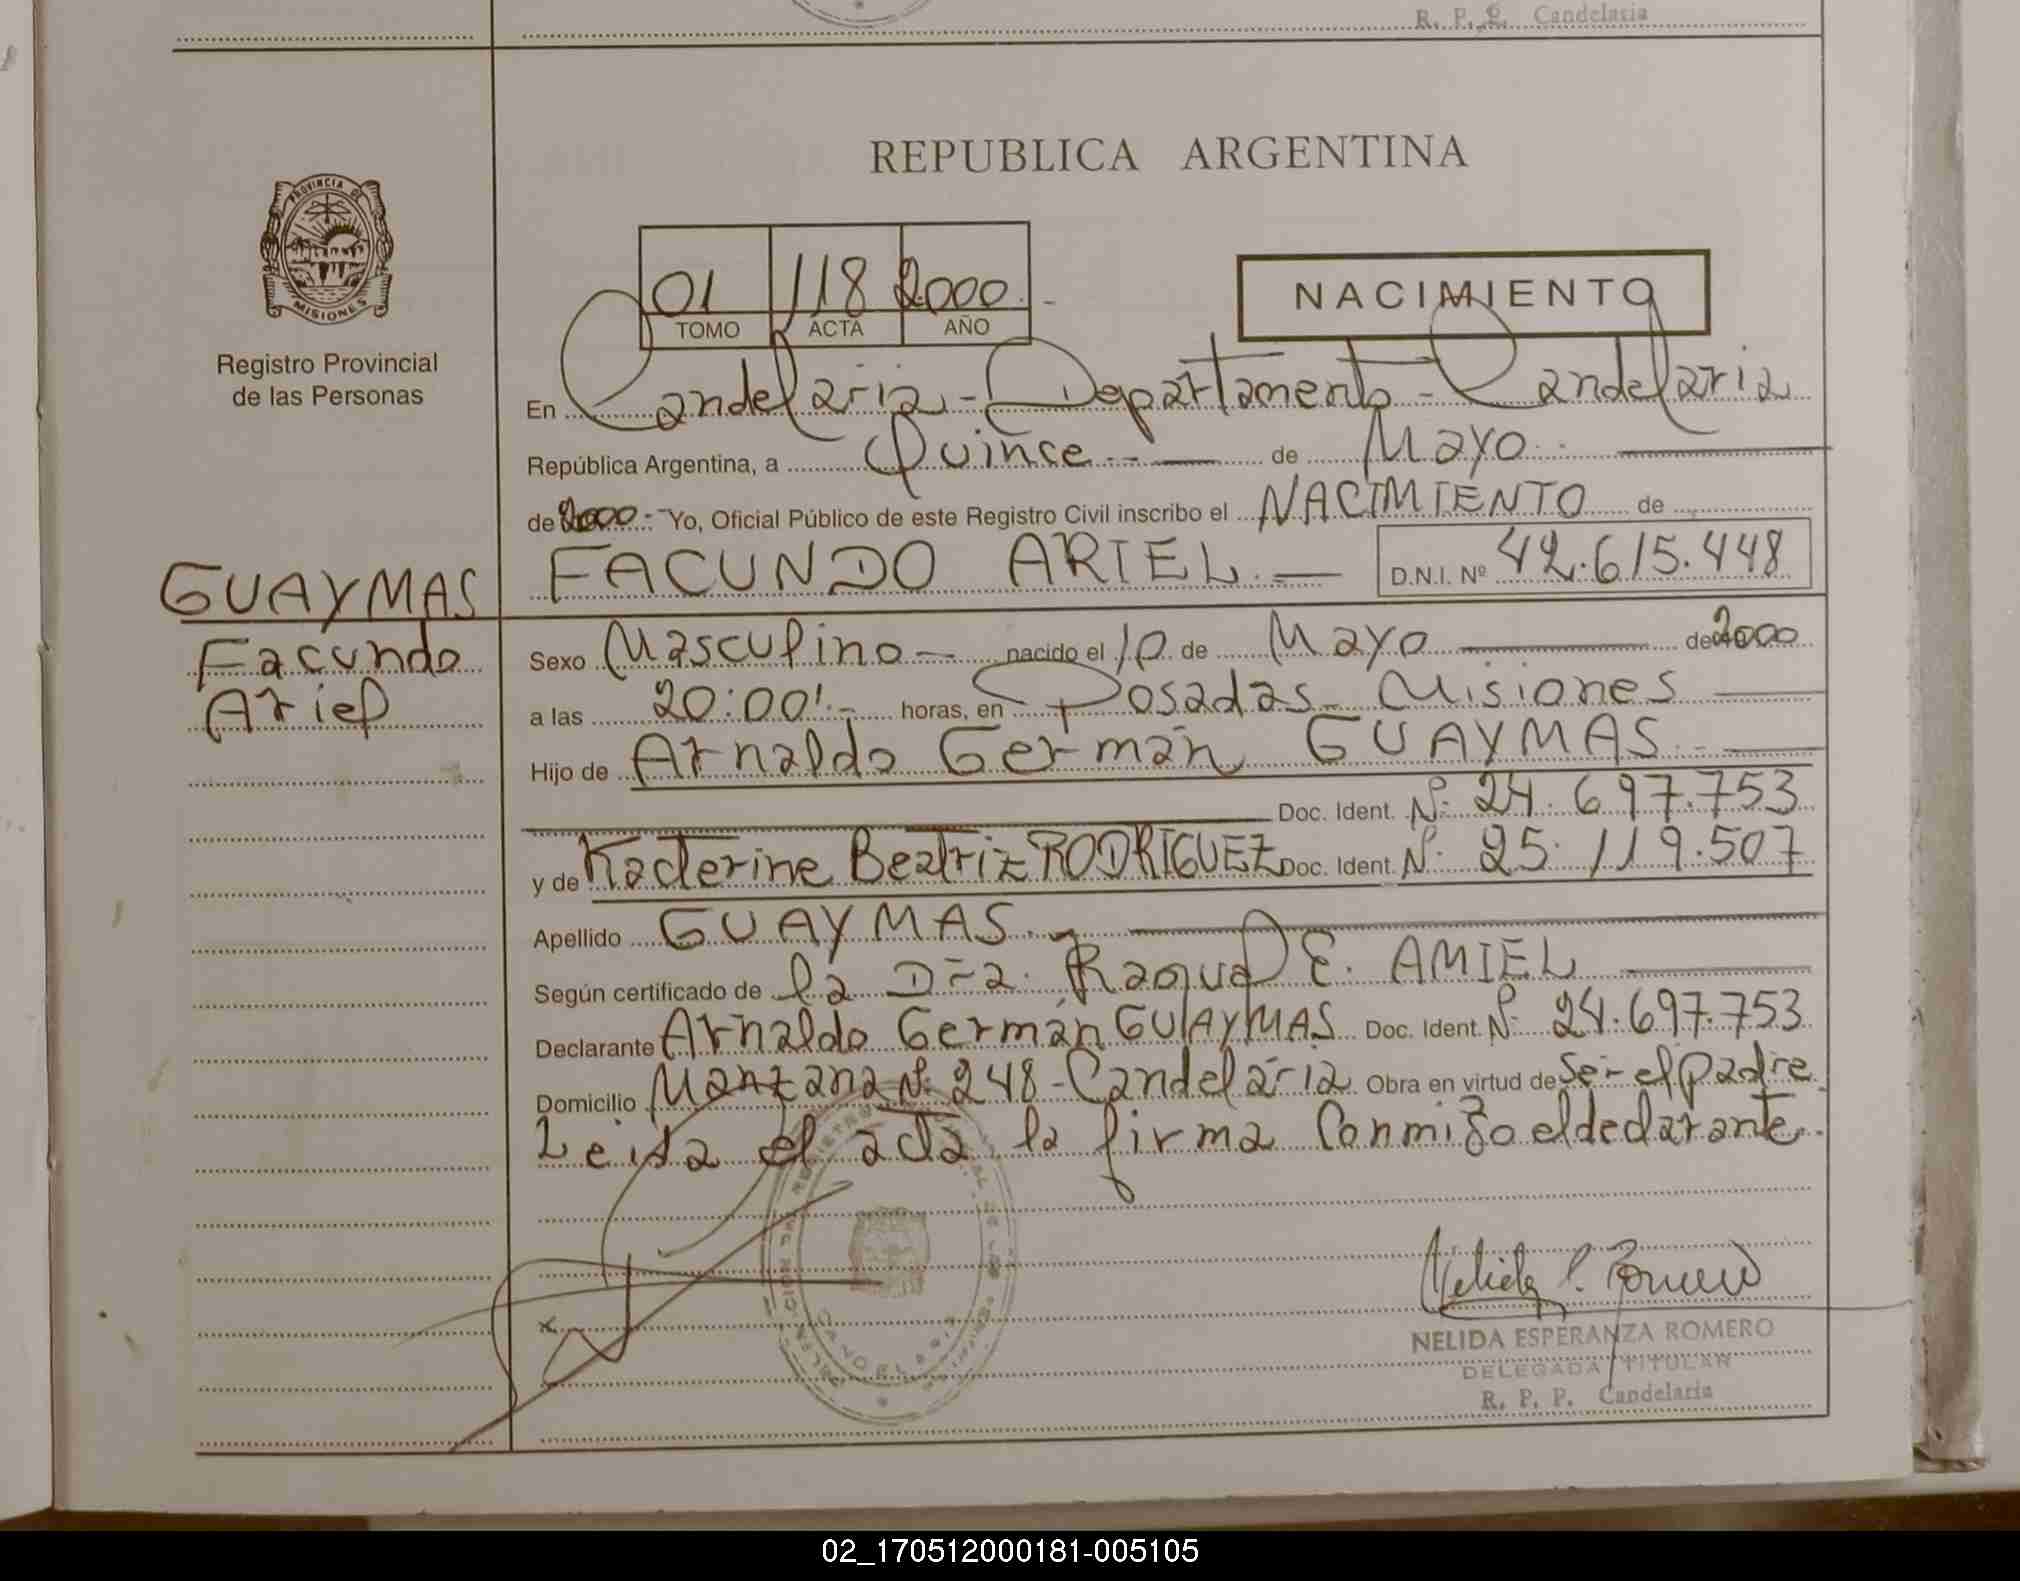 R. P. P. Candelaria
REPUBLICA ARGENTINA
PROVINCIA DE
MISIONES
Registro Provincial
de las Personas
01 118 2000.-
TOMO ACTA AÑO
NACIMIENTO
En Candelaria - Departamento - Candelaria
República Argentina, a Quince de Mayo
de 2000.- Yo, Oficial Público de este Registro Civil inscribo el NACIMIENTO de
FACUNDO ARIEL.— D.N.I. Nº 42.615.448
GUAYMAS
Facundo
Ariel
Sexo Masculino — nacido el 10 de Mayo de 2000
a las 20:00'.- horas, en Posadas - Misiones
Hijo de Arnaldo Germán GUAYMAS.-
Doc. Ident. Nº 24.697.753
y de Kacterine Beatriz RODRIGUEZ Doc. Ident. Nº 25.119.507
Apellido GUAYMAS.-
Según certificado de la Dra. Raquel E. AMIEL
Declarante Arnaldo Germán GUAYMAS Doc. Ident. Nº 24.697.753
Domicilio Manzana Nº 248 - Candelaria Obra en virtud de ser el padre.
Leida el acta la firma conmigo el declarante.
CANDELARIA
NELIDA ESPERANZA ROMERO
DELEGADA TITULAR
R. P. P. Candelaria
02_170512000181-005105